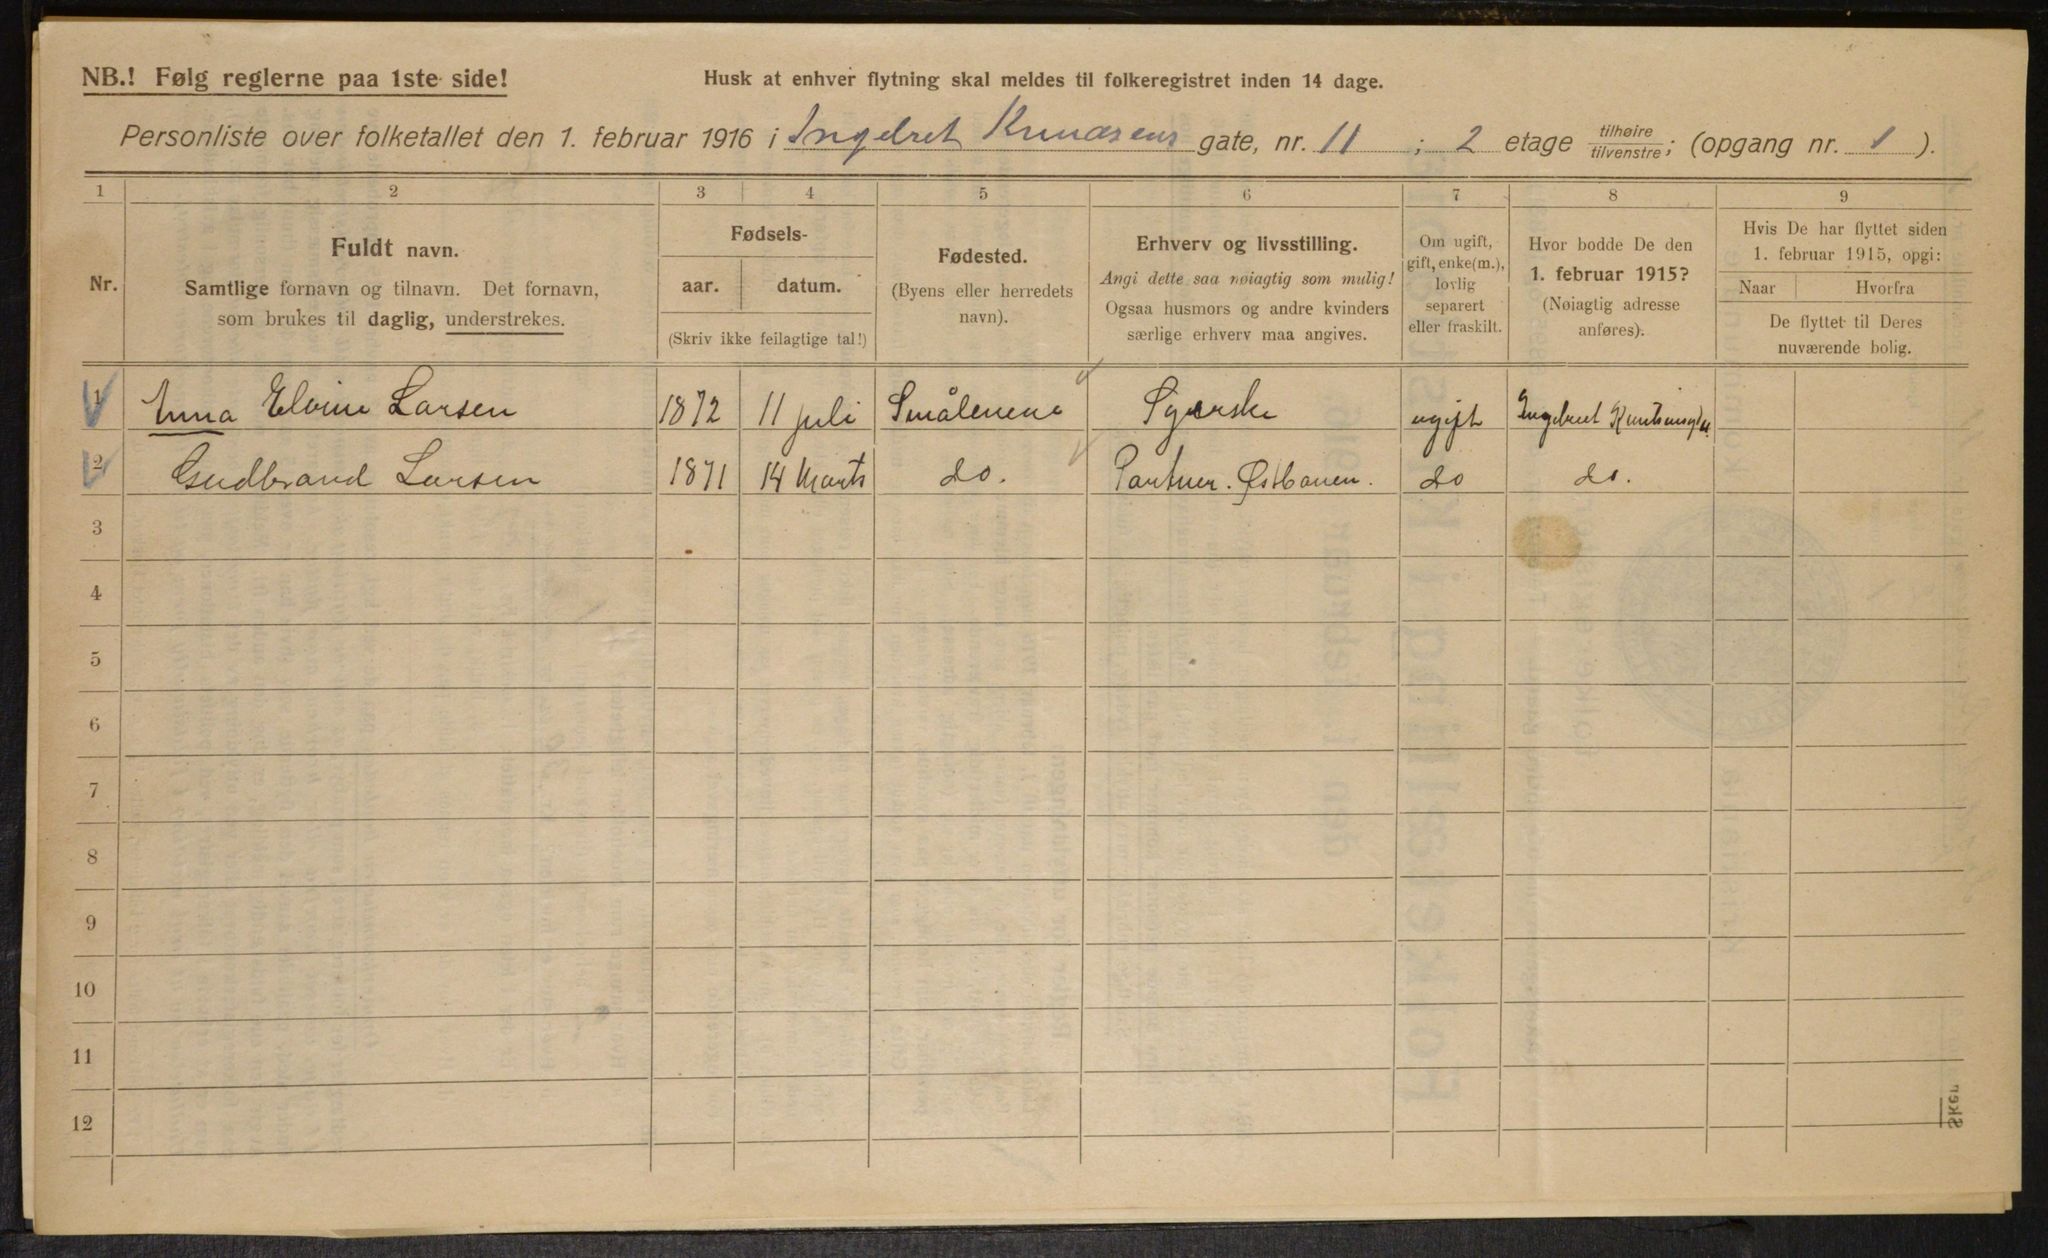 NB.! Følg reglerne paa 1ste side!
Husk at enhver flytning skal meldes til folkeregistret inden 14 dage.
Personliste over folketallet den 1. februar 1916 i Ingebret Knudsens gate, nr. 11 ; 2 etage tilhøire/tilvenstre; (opgang nr. 1 ).
1 2 3 4 5 6 7 8 9
Nr.
Fuldt navn.
Samtlige fornavn og tilnavn. Det fornavn,
som brukes til daglig, understrekes.
Fødsels-
aar. datum.
(Skriv ikke feilagtige tal!)
Fødested.
(Byens eller herredets
navn).
Erhverv og livsstilling.
Angi dette saa nøiagtig som mulig!
Ogsaa husmors og andre kvinders
særlige erhverv maa angives.
Om ugift,
gift, enke(m.),
lovlig
separert
eller fraskilt.
Hvor bodde De den
1. februar 1915?
(Nøiagtig adresse
anføres).
Hvis De har flyttet siden
1. februar 1915, opgi:
Naar Hvorfra
De flyttet til Deres
nuværende bolig.
1 Anna Elvine Larsen 1872 11 juli Smålenene Syerske ugift Ingebret
2 Gudbrand Larsen 1871 14 Marts do. Partner. Østbanen. do do.
3
4
5
6
7
8
9
10
11
12